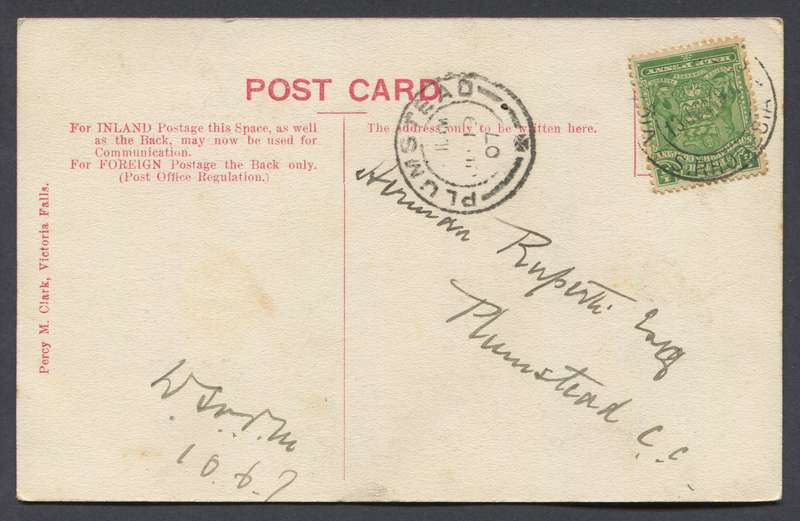 POST CARD
For INLAND Postage this Space, as well
as the Back, may now be used for
Communication.
For FOREIGN Postage the Back only.
(Post Office Regulation.)
The address only to be written here.
PLUMSTEAD
07
HALF PENNY
Percy M. Clark, Victoria Falls.
Herman Ruperti Esq
Plumstead C.C.